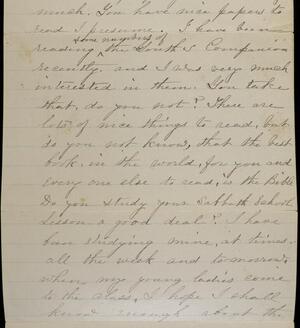 much. You have nice papers to
read I presume. I have been
some numbers of
reading, the Youth's Companion
recently, and I was very much
interested in them. You take
that, do you not? There are
lots of nice things to read, but
do you not know, that the best
book in the world, for you and
every one else to read, is the Bible
Do you study your Sabbath School
Lesson a good deal? I have
been studying mine, at times,
all the week and tomorrow,
when my young ladies come
to the class, I hope I shall
know enough about the